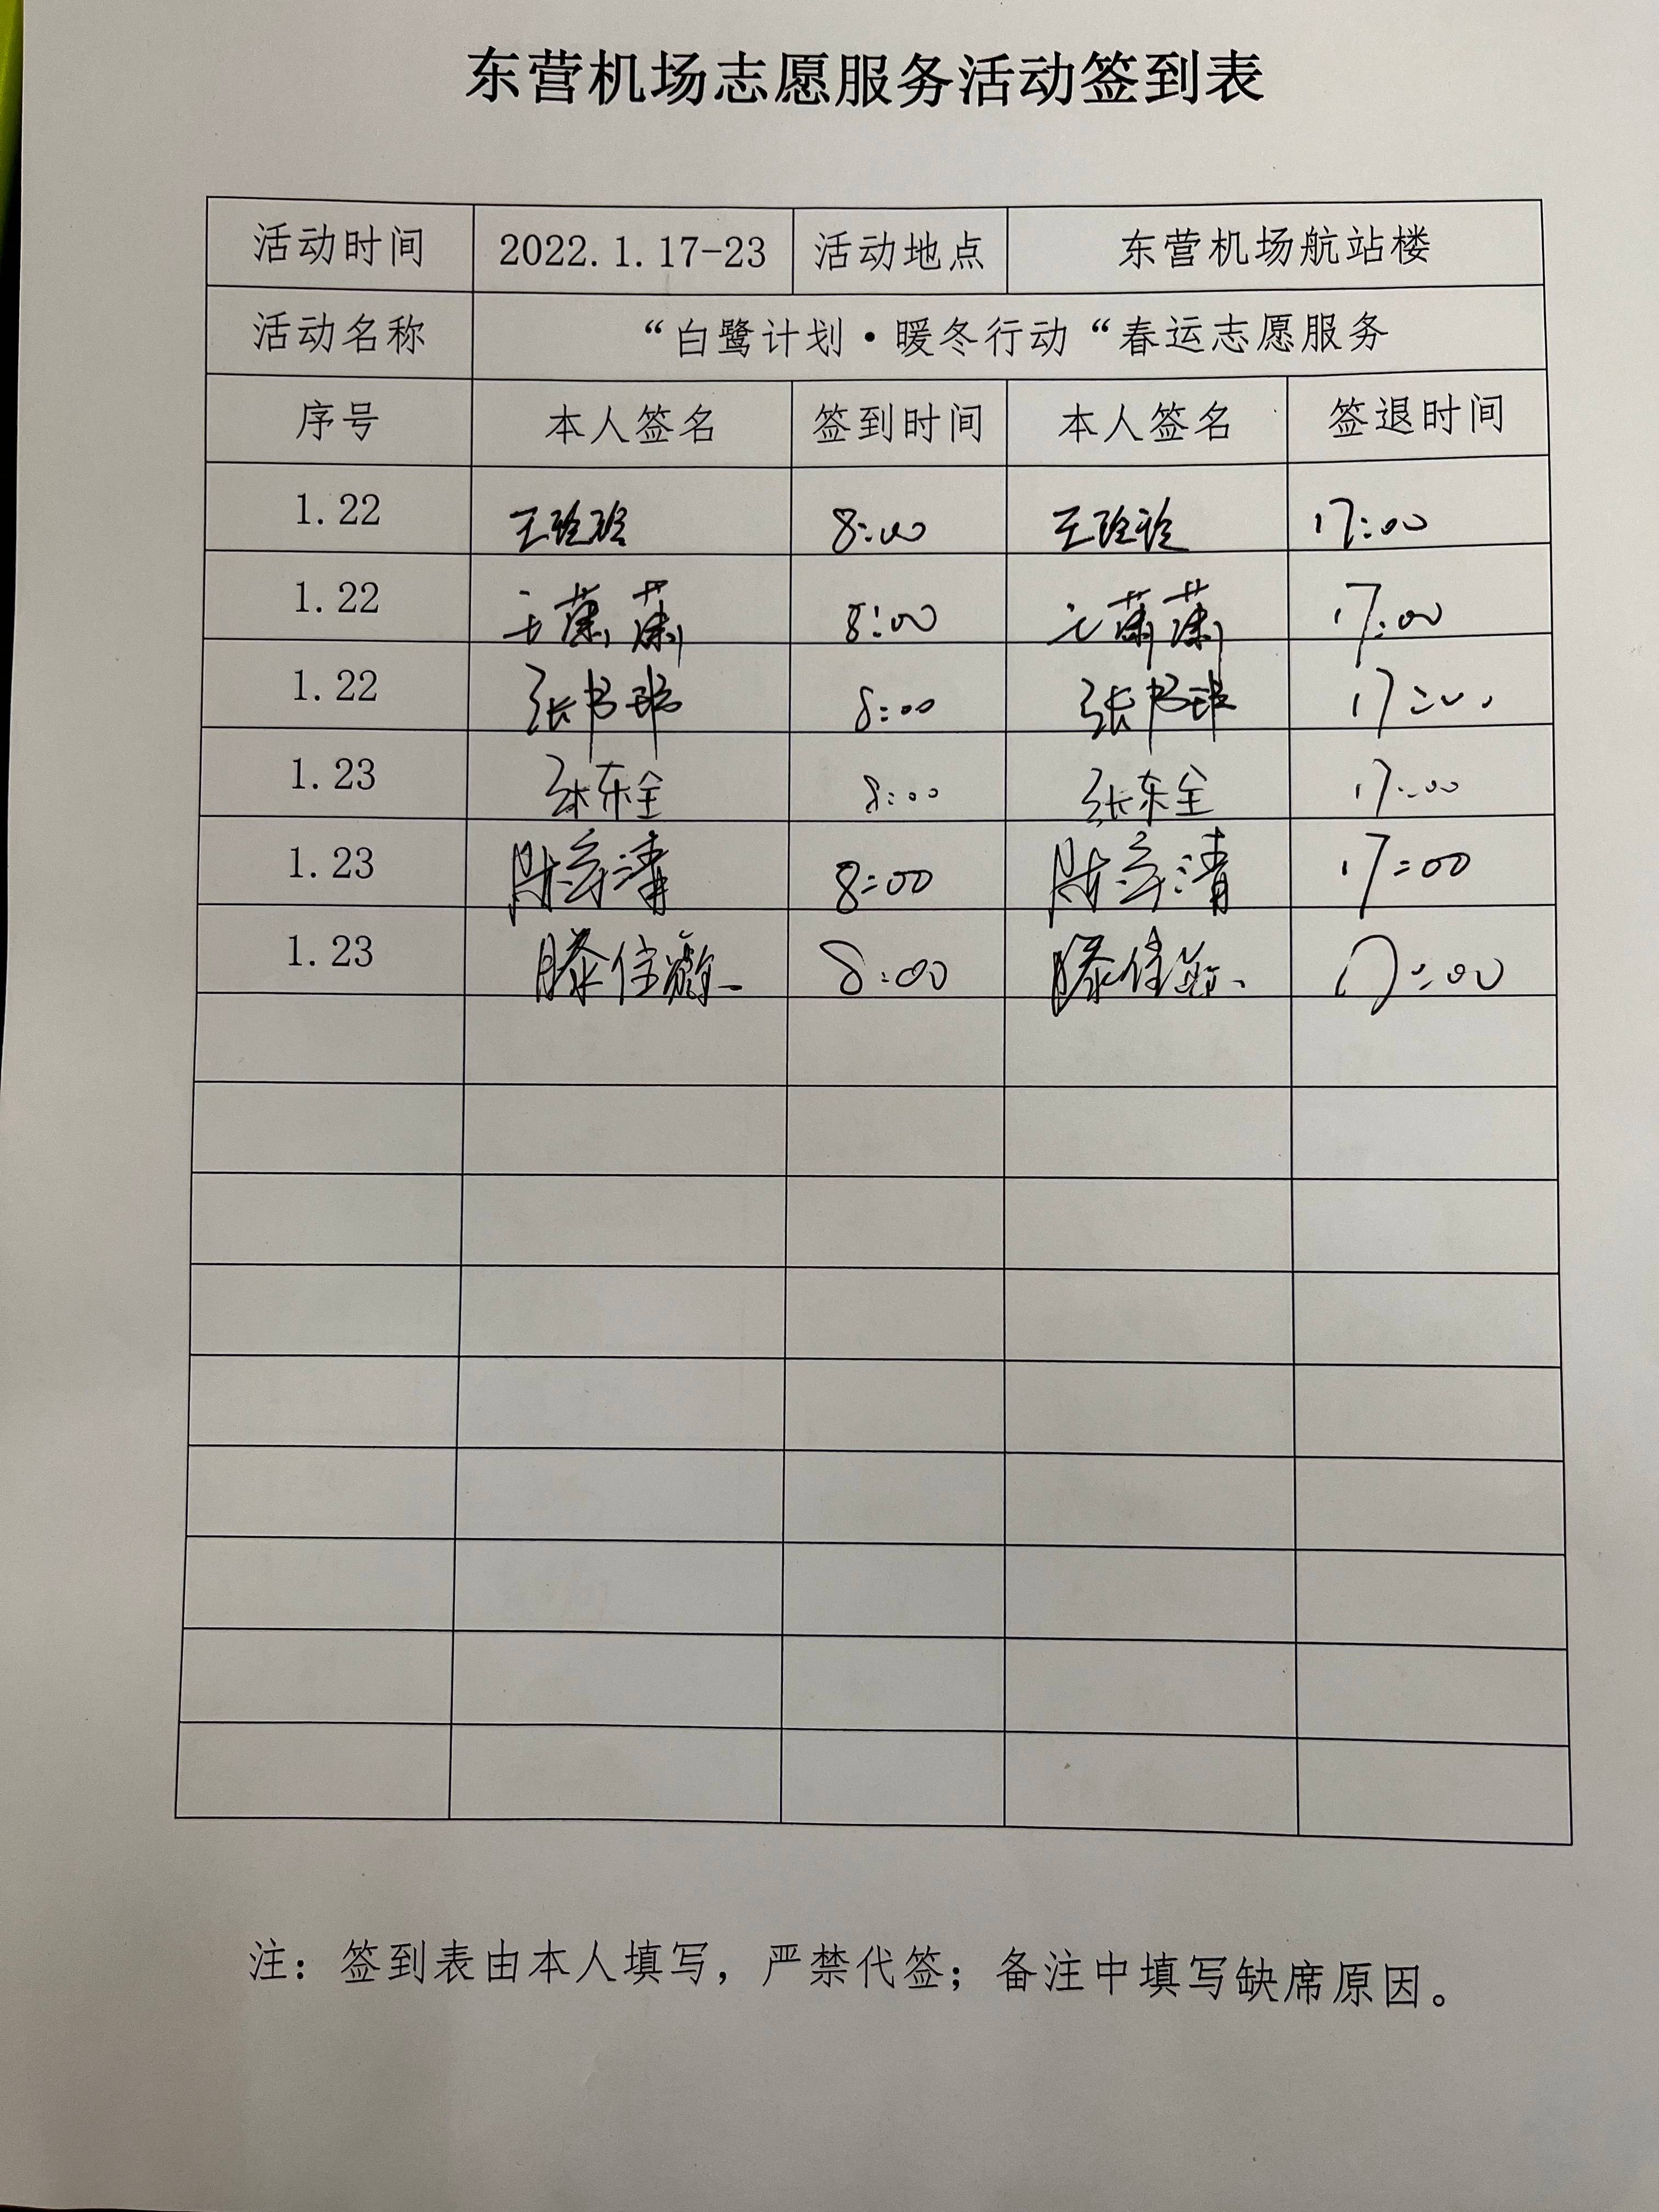 东营机场志愿服务活动签到表
活动时间 2022.1.17-23 活动地点 东营机场航站楼
活动名称 “白鹭计划·暖冬行动“春运志愿服务
序号 本人签名 签到时间 本人签名 签退时间
1.22 王玲玲 8:00 王玲玲 17:00
1.22 王萧萧 8:00 王萧萧 17:00
1.22 张书 8:00 张书 17:00
1.23 张东全 8:00 张东全 17:00
1.23 清 8:00 清 17:00
1.23 滕佳 8:00 滕佳 17:00
注：签到表由本人填写，严禁代签；备注中填写缺席原因。